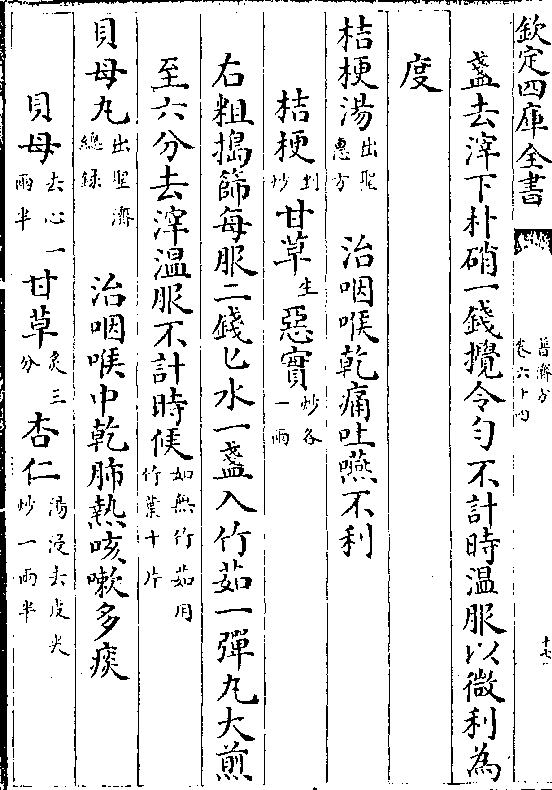 欽定四庫全書
普濟方
卷六十四
十七
盞去滓下朴硝一錢攪令勻不計時温服以微利為
度
桔梗湯出聖惠方　治咽喉乾痛吐嚥不利
桔梗剉炒甘草生惡實炒各一兩
右粗搗篩每服二錢匕水一盞入竹茹一彈丸大煎
至六分去滓温服不計時候如無竹茹用竹葉十片
貝母丸出聖濟總録　治咽喉中乾肺熱咳嗽多痰
貝母去心一兩半甘草炙三分杏仁湯浸去皮尖炒一兩半